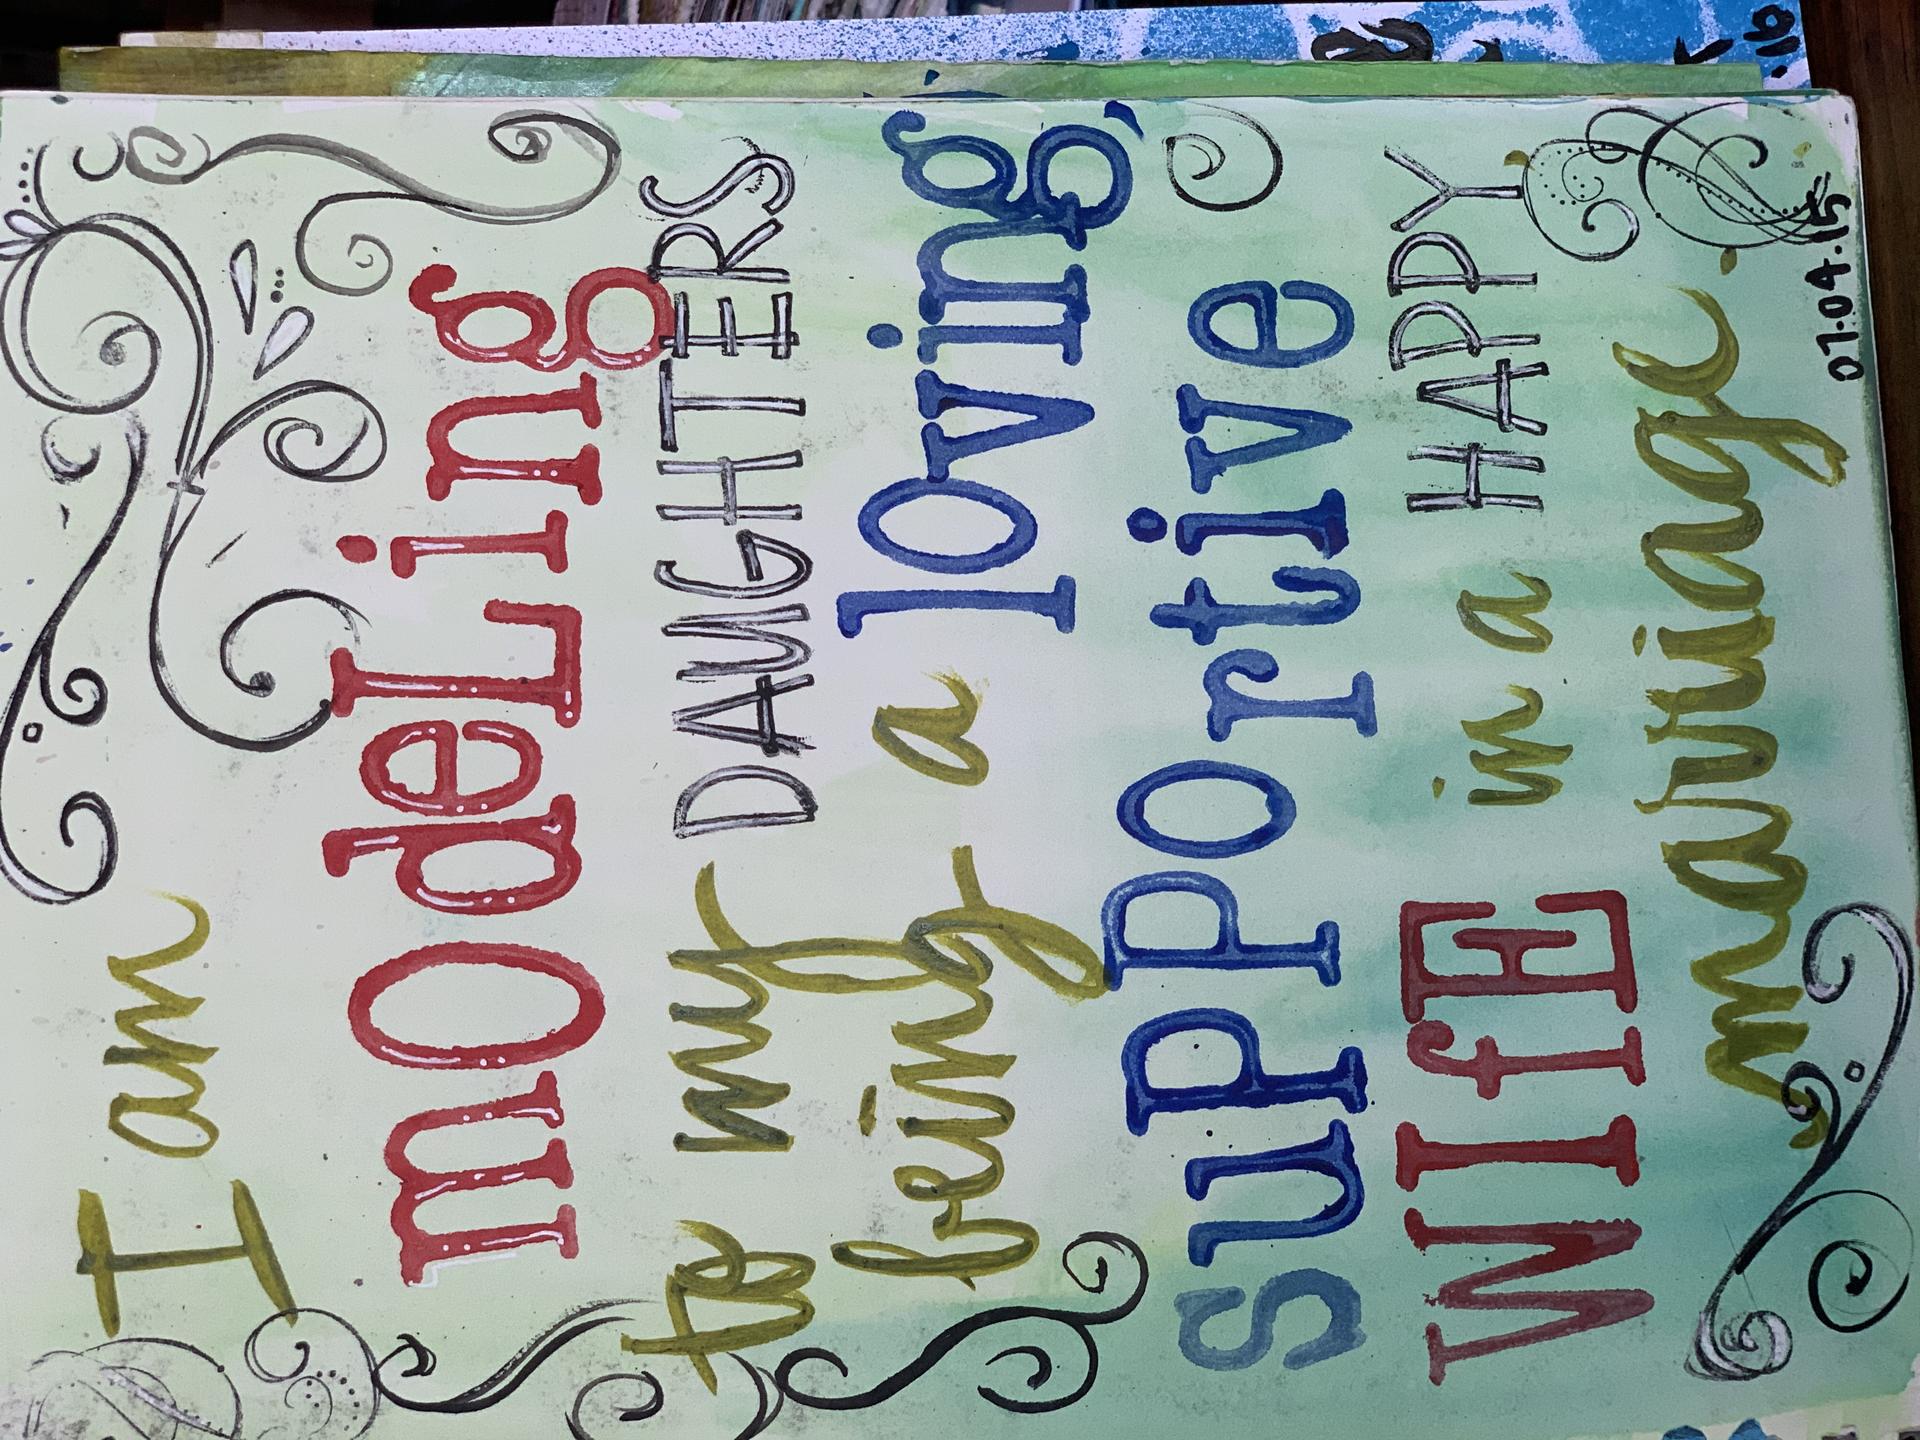 I am
modeLing
to my DAUGHTERS
being a loving,
suPPortive
WIfE in a HAPPY
marriage
07.04.15